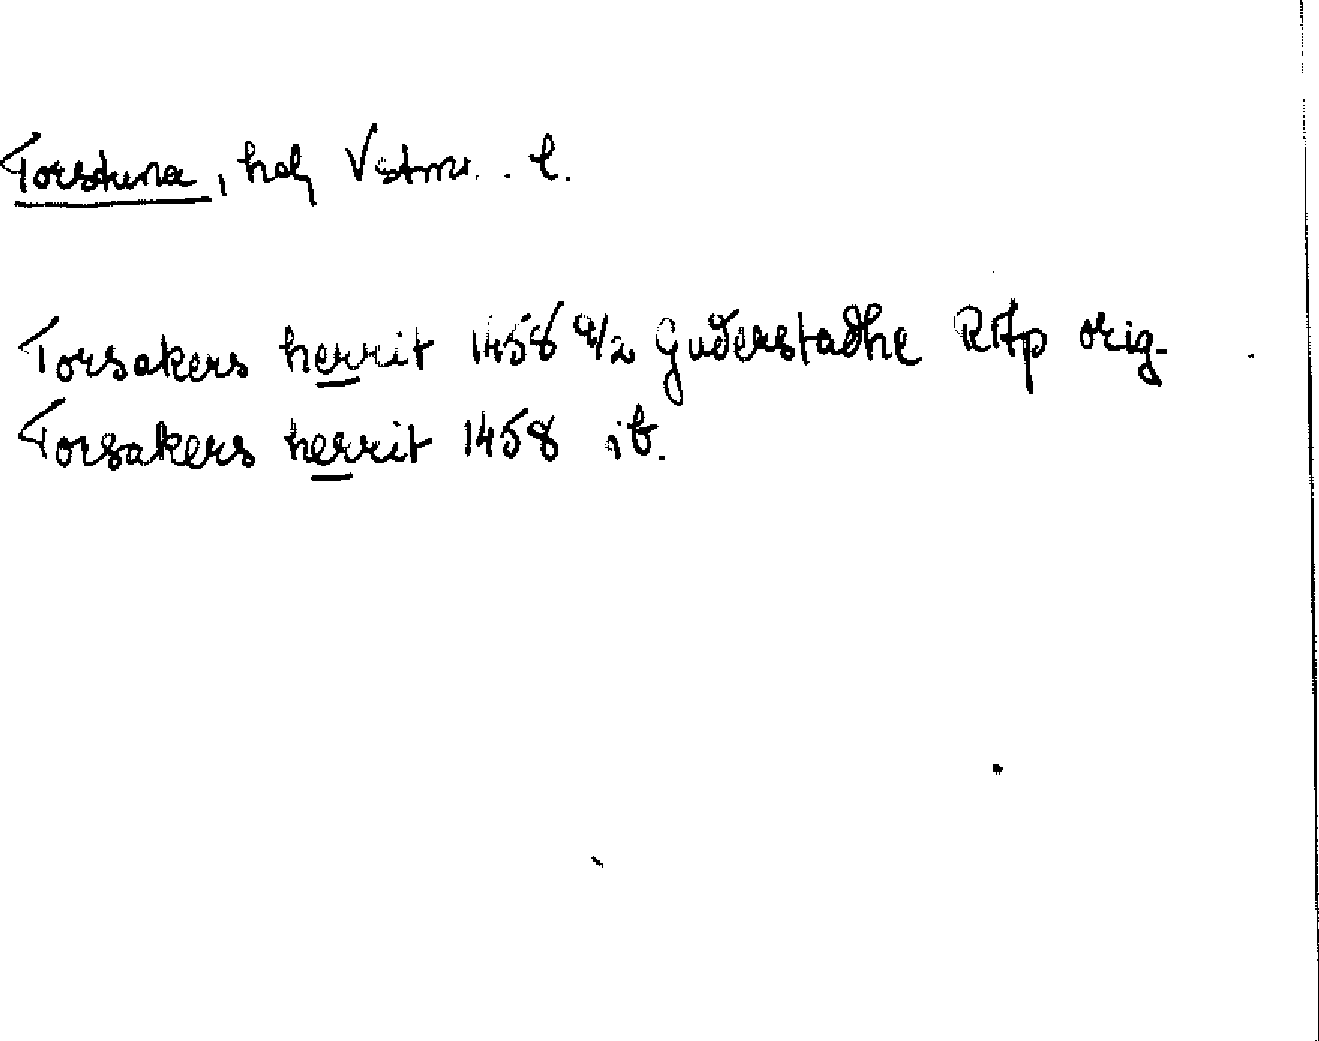 Torstuna, hd, Vstm. l.
Torsakers herrit 1458 9/2 Guderstadhe RAp orig.
Torsakers herrit 1458 ib.